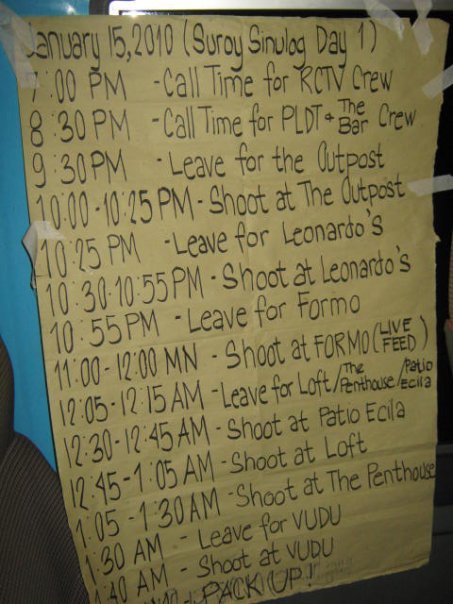 January 15, 2010 (Suroy Sinulog Day 1)
7:00 PM - Call Time for RCTV Crew
8:30 PM - Call Time for PLDT + The Bar Crew
9:30 PM - Leave for the Outpost
10:00-10:25 PM - Shoot at The Outpost
10:25 PM - Leave for Leonardo's
10:30-10:55 PM - Shoot at Leonardo's
10:55 PM - Leave for Formo
11:00-12:00 MN - Shoot at FORMO (LIVE FEED)
12:05-12:15 AM - Leave for Loft/The Penthouse/Patio Ecila
12:30-12:45 AM - Shoot at Patio Ecila
12:45-1:05 AM - Shoot at Loft
1:05-1:30 AM - Shoot at The Penthouse
1:30 AM - Leave for VUDU
1:40 AM - Shoot at VUDU
- PACK UP!